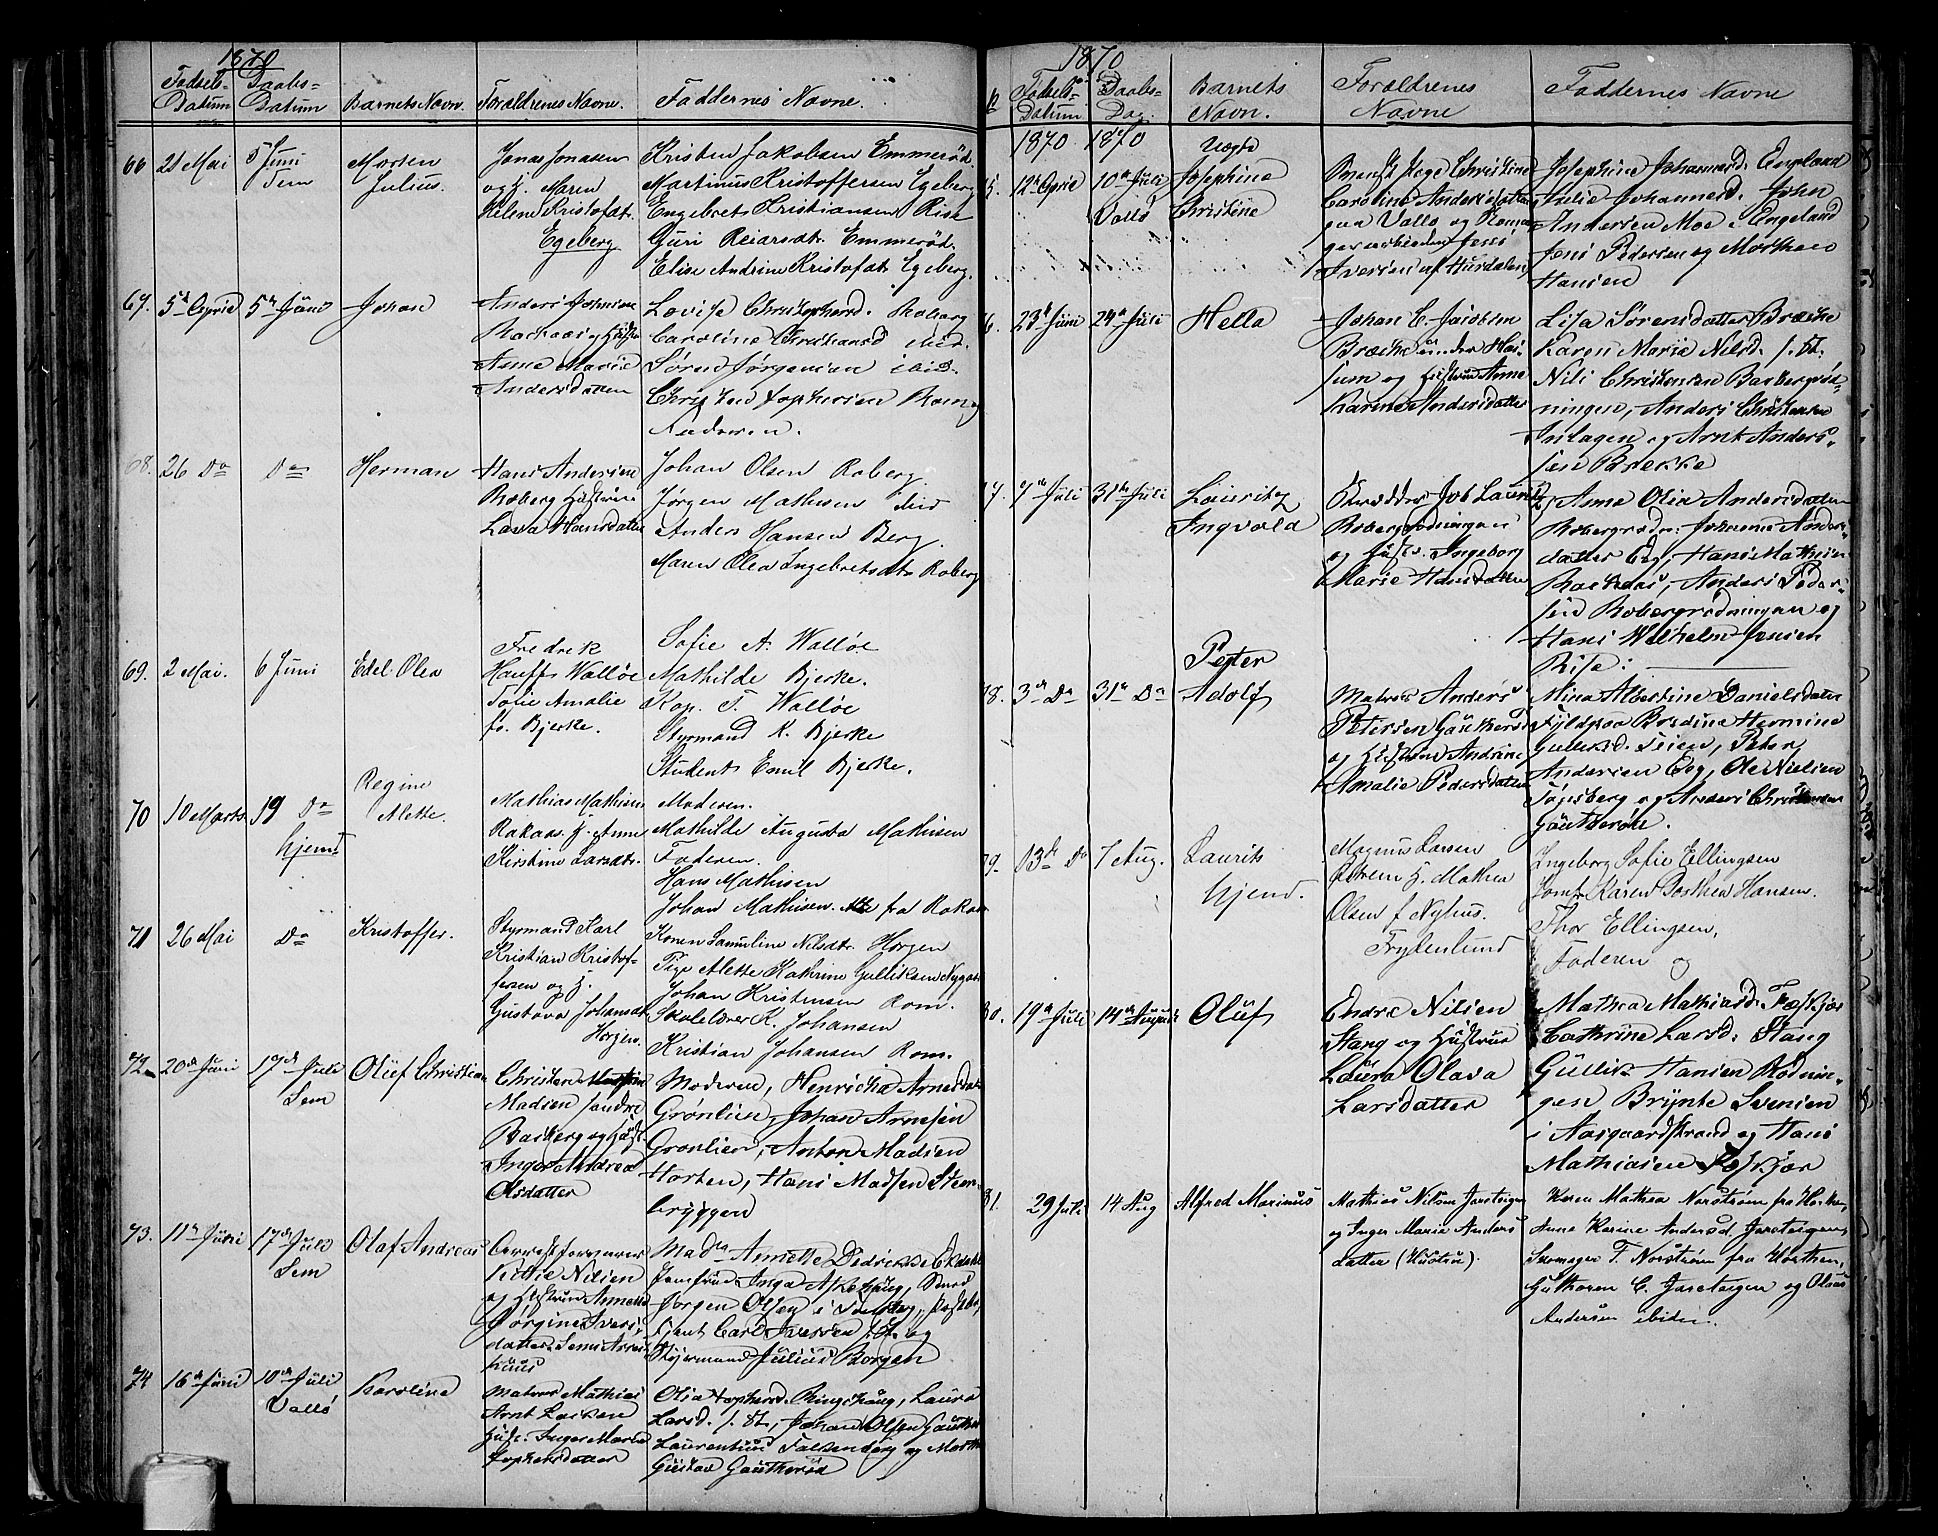 1870
Fødsels-
Datum
Daabs-
Datum
Barnets Navn.
Forældrenes Navne.
Faddernes Navne.
66
21 Mai
5 Juni
Sem
Morten
Julius.
Jonas Jonasen
og H. Maren
Helene Kristofat.
Egeberg
Kristen Jakobsen Emmerød.
Martinus Kristoffersen Egeberg
Engebret Kristiansen Rise
Guri Reiersdt. Emmerød.
Elise Andrine Kristofat. Egeberg.
67.
5te April
5te Juni
Johan
Anders Johnsen
Rackaas og Hustru
Anne Marie
Andersdatter
Lovise Christophersd. Roberg
Caroline Christiansd ibid.
Søren Jørgensen ibid.
Christen Tophersen Rom og
Faderen.
68.
26 Do
Do
Herman
Hans Andersen
Roberg Hustrue
Lava Hansdatter
Johan Olsen Roberg.
Jørgen Mathisen ibid
Anders Hansen Berg.
Maren Olea Ingebretsdt. Roberg
69.
2 Mai.
6 Juni
Edel Olea
Fredrik
Hauff Walløe
Sofie Amalie
f. Bjerke.
Sofie A. Walløe
Mathilde Bjerke.
Kap. T. Walløe
Styrmand K. Bjerke
Student Emil Bjerke.
70
10 Marts
19 Do
hjemd
Regine
Alette.
Mathias Mathisen
Rakaas. H. Anne
Kirstine Larsdt.
Moderen.
Mathilde Augusta Mathisen
Faderen.
Hans Mathisen
Johan Mathisen. Alle fra Rakaas
71
26 Mai
Do
Kristoffer.
Styrmand Karl
Kristian Kristof-
fersen og H.
Gustava Johansdt
Horgen.
Karen Samuline Nilsdt. Horgen
Pige Alette Kathrine Gulliksen Nygaard
Johan Kristensen Rom.
Skolelærer K. Johansen
Kristian Johansen Rom.
72.
20de Juni
17de Juli
Sem
Oluf Christian
Christen
Madsen søndre
Basberg og Hust.
Inger Andrea
Olsdatter
Moderen, Henricha Arnesdat
Grønlien, Johan Arnesen
Grønlien, Anton Madsen
Horten, Hans Madsen Steen-
bryggen
73.
11te Juni
17de Juli
Sem
Olaf Andreas
Arrestforvarer
Kittil Nilsen
og Hustru Annette
Jørgine Ivers-
datter Sems Arrest-
huus
Madm Annette Dedrikke
Jomfrue Inga Akerhaug, Smed
Jørgen Olsen i Tønsberg, Postbe,
tjent Carl Iversen f. St. og
Styrmand Julius Borgen
74
16de Juni
10de Juli
Vallø
Karoline
Matros Mathias
Arnt Larsen
Hust. Inger Marie
Tophersdatter
Olia Tophersd. Ringshaug, Laura
Larsd. f. St., Johan Olsen Gauterød
Laurentius Falkenberg og
Gustav Gauterød
1870
N
Fødsels-
Datum
Daabs-
Dag.
Barnets
Navn.
Forældrenes
Navne
Faddernes Navne
1870
1870
75.
12te April
10de Juli
Vallø
Uægte
Josephine
Christine
Ugivt Pige Christine
Caroline Andersdatter
paa Vallø og
gaardsarbeider Jens
Iversen af Hurdalen
Josephine Johannesd. Engeland
Julie Johannesd. John
Andersen Moe, Engeland
Jens Pedersen og Morthen
Hansen
76.
23de Juni
24de Juli
Hella
Johan E. Jacobsen
Brække under Has-
sum og Hustrue Anne
Karine Andersdatter
Lisa Sørensdatter Brække
Karen Marie Nilsd. f. St.
Nils Christensen Basbergrød-
ningen, Anders Christensen
Intagen og Arnt Anders-
sen Brekke
77.
7de Juli
31te Juli
Lauritz
Ingvald
Skrædder Job Lauritz
Robergrødningen
og Hustr. Ingeborg
Marie Hansdatter
Anne Olia Andersdatter
Robergrødn: Johanne Anders-
datter Eeg, Hans Mathisen
Rackaas, Anders Peder-
sen Robergrødningen og
Hans Wilhelm Jensen
Rise:
78.
3de Do
31te Do
Peter
Adolf
Matros Anders
Petersen Gautherød
og Hustru Andrine
Amalie Pedersdatter
Mina Albertine Danielsdatter
Fyldpaa Bredine Hermine
Gulliksd. Teien, Peter
Andersen Eeg, Ole Nielsen
Tønsberg og Anders Christensen
Gautherød.
79.
13de Do
7 Aug.
Laurits
hjemd.
Magnus Larsen
Østrem H. Mathea
Olsen f Nyhus.
Trylenlund
Ingeborg Sofie Ellingsen
Jomfr Karen Dorthea Hansen.
Thor Ellingsen,
Faderen og
80.
19de Juli
14de August
Oluf
Endre Nilsen
Stang og Hustrue
Laura Olava
Larsdatter
Mathea Mathiasd. Foskjær
Cathrine Larsd. Stang
Gullik Hansen Rødnin-
gen Brynte Svensen
i Aasgaardstrand og Hans
Mathiasen Foskjær
81.
29 Juli
14 Aug
Alfred Marinius
Mathias Nilsen Jareteigen
og Inger Marie Anders
datter (Hustru).
Karen Mathea Norstrøm fra Horten,
Anna Karine Andersd. Jareteigen,
Skomager T. Norstrøm fra Horthen,
Guthoren C. Jareteigen og Olaus
Andersen ibidem.